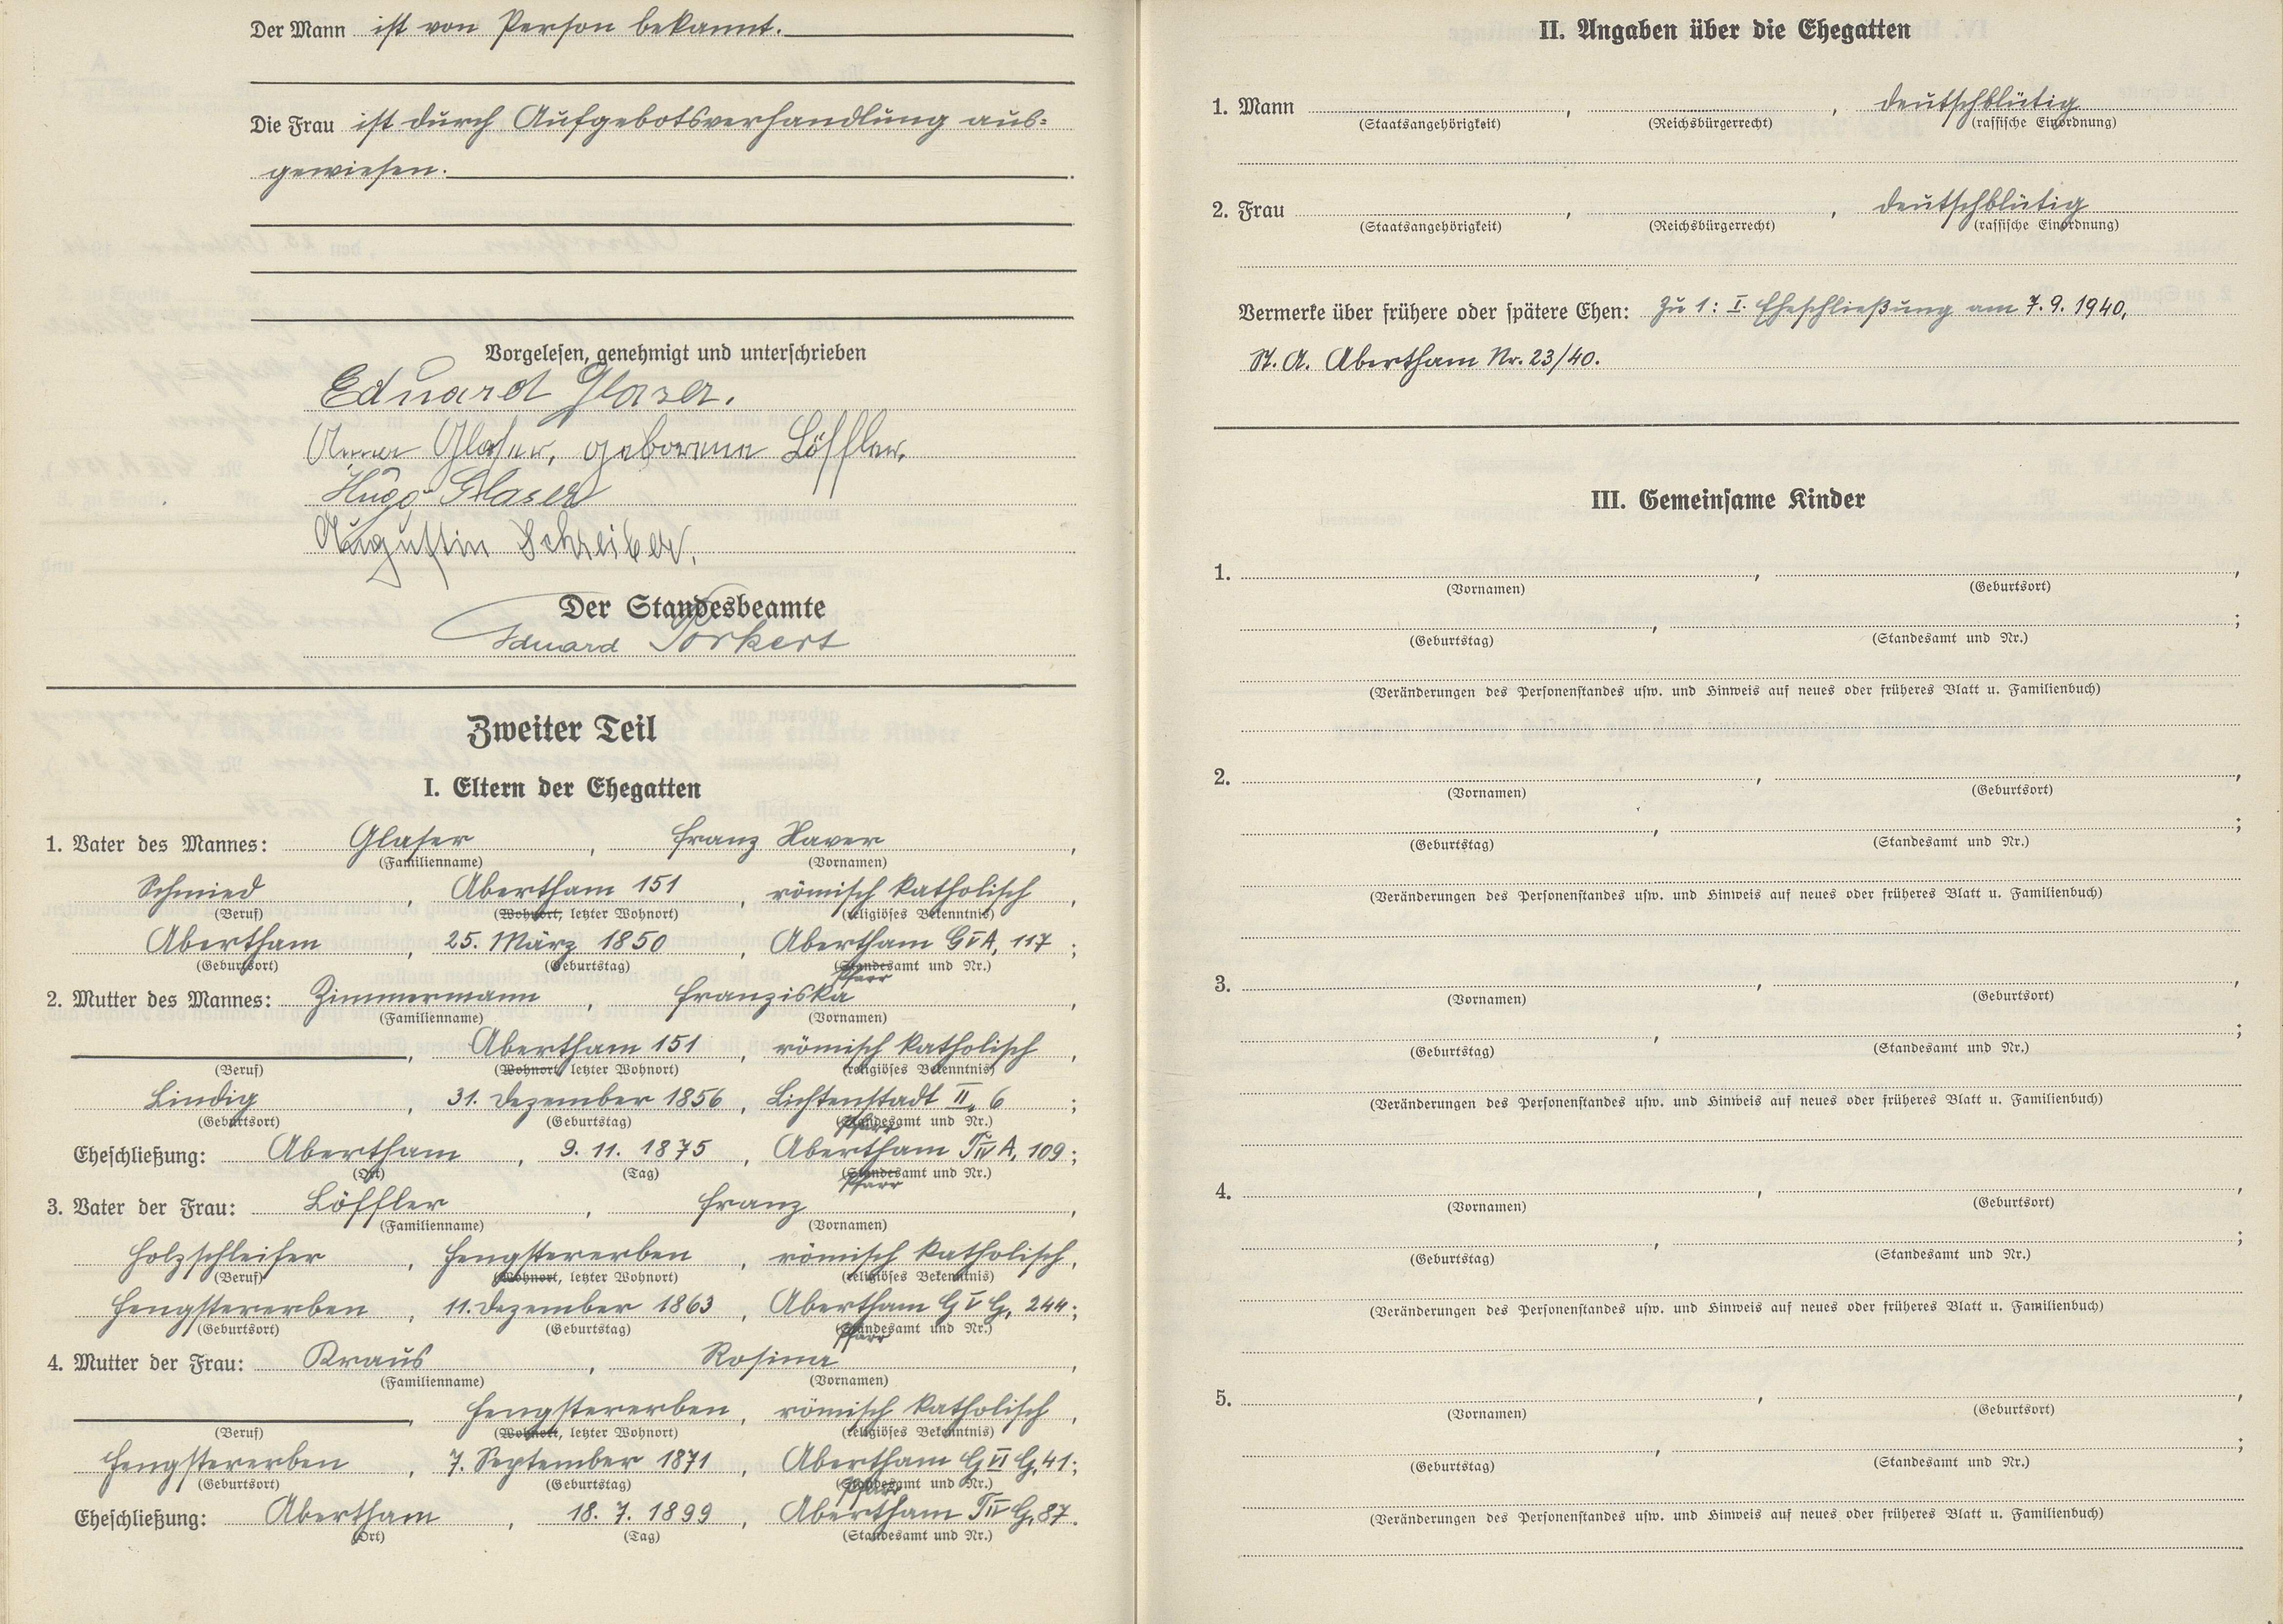 Der Mann ist von Person bekannt.
Die Frau ist durch Aufgebotsverhandlung aus=
gewiesen.
Vorgelesen, genehmigt und unterschrieben
Eduard Glaser.
Anna Glaser, geborene Löffler.
Hugo Glaser
Augustin Schreiber.
Der Standesbeamte
Eduard Porkert
Zweiter Teil
I. Eltern der Ehegatten
1. Vater des Mannes: Glaser, Franz Xaver,
(Familienname) (Vornamen)
Schmied, Abertham 151, römisch katholisch,
(Beruf) (Wohnort, letzter Wohnort) (religiöses Bekenntnis)
Abertham, 25. März 1850, Abertham G V A, 117;
(Geburtsort) (Geburtstag) (Standesamt und Nr.)
Pfarr
2. Mutter des Mannes: Zimmermann, Franziska,
(Familienname) (Vornamen)
, Abertham 151, römisch katholisch,
(Beruf) (Wohnort, letzter Wohnort) (religiöses Bekenntnis)
Lindig, 31. Dezember 1856, Lichtenstadt II, 6;
(Geburtsort) (Geburtstag) (Standesamt und Nr.)
Pfarr
Eheschließung: Abertham, 9. 11. 1875, Abertham T IV A, 109;
(Ort) (Tag) (Standesamt und Nr.)
Pfarr
3. Vater der Frau: Löffler, Franz,
(Familienname) (Vornamen)
Holzschleifer, Hengstererben, römisch katholisch,
(Beruf) (Wohnort, letzter Wohnort) (religiöses Bekenntnis)
Hengstererben, 11. Dezember 1863, Abertham G V H, 244;
(Geburtsort) (Geburtstag) (Standesamt und Nr.)
Pfarr
4. Mutter der Frau: Kraus, Rosina,
(Familienname) (Vornamen)
, Hengstererben, römisch katholisch,
(Beruf) (Wohnort, letzter Wohnort) (religiöses Bekenntnis)
Hengstererben, 7. September 1871, Abertham G VI H, 41;
(Geburtsort) (Geburtstag) (Standesamt und Nr.)
Pfarr
Eheschließung: Abertham, 18. 7. 1899, Abertham T IV H, 87.
(Ort) (Tag) (Standesamt und Nr.)
II. Angaben über die Ehegatten
1. Mann , , deutschblütig
(Staatsangehörigkeit) (Reichsbürgerrecht) (rassische Einordnung)
2. Frau , , deutschblütig
(Staatsangehörigkeit) (Reichsbürgerrecht) (rassische Einordnung)
Vermerke über frühere oder spätere Ehen: Zu 1: I. Eheschließung am 7. 9. 1940,
St. A. Abertham Nr. 23/40.
III. Gemeinsame Kinder
1. , ,
(Vornamen) (Geburtsort)
, ;
(Geburtstag) (Standesamt und Nr.)
(Veränderungen des Personenstandes usw. und Hinweis auf neues oder früheres Blatt u. Familienbuch)
2. , ,
(Vornamen) (Geburtsort)
, ;
(Geburtstag) (Standesamt und Nr.)
(Veränderungen des Personenstandes usw. und Hinweis auf neues oder früheres Blatt u. Familienbuch)
3. , ,
(Vornamen) (Geburtsort)
, ;
(Geburtstag) (Standesamt und Nr.)
(Veränderungen des Personenstandes usw. und Hinweis auf neues oder früheres Blatt u. Familienbuch)
4. , ,
(Vornamen) (Geburtsort)
, ;
(Geburtstag) (Standesamt und Nr.)
(Veränderungen des Personenstandes usw. und Hinweis auf neues oder früheres Blatt u. Familienbuch)
5. , ,
(Vornamen) (Geburtsort)
, ;
(Geburtstag) (Standesamt und Nr.)
(Veränderungen des Personenstandes usw. und Hinweis auf neues oder früheres Blatt u. Familienbuch)